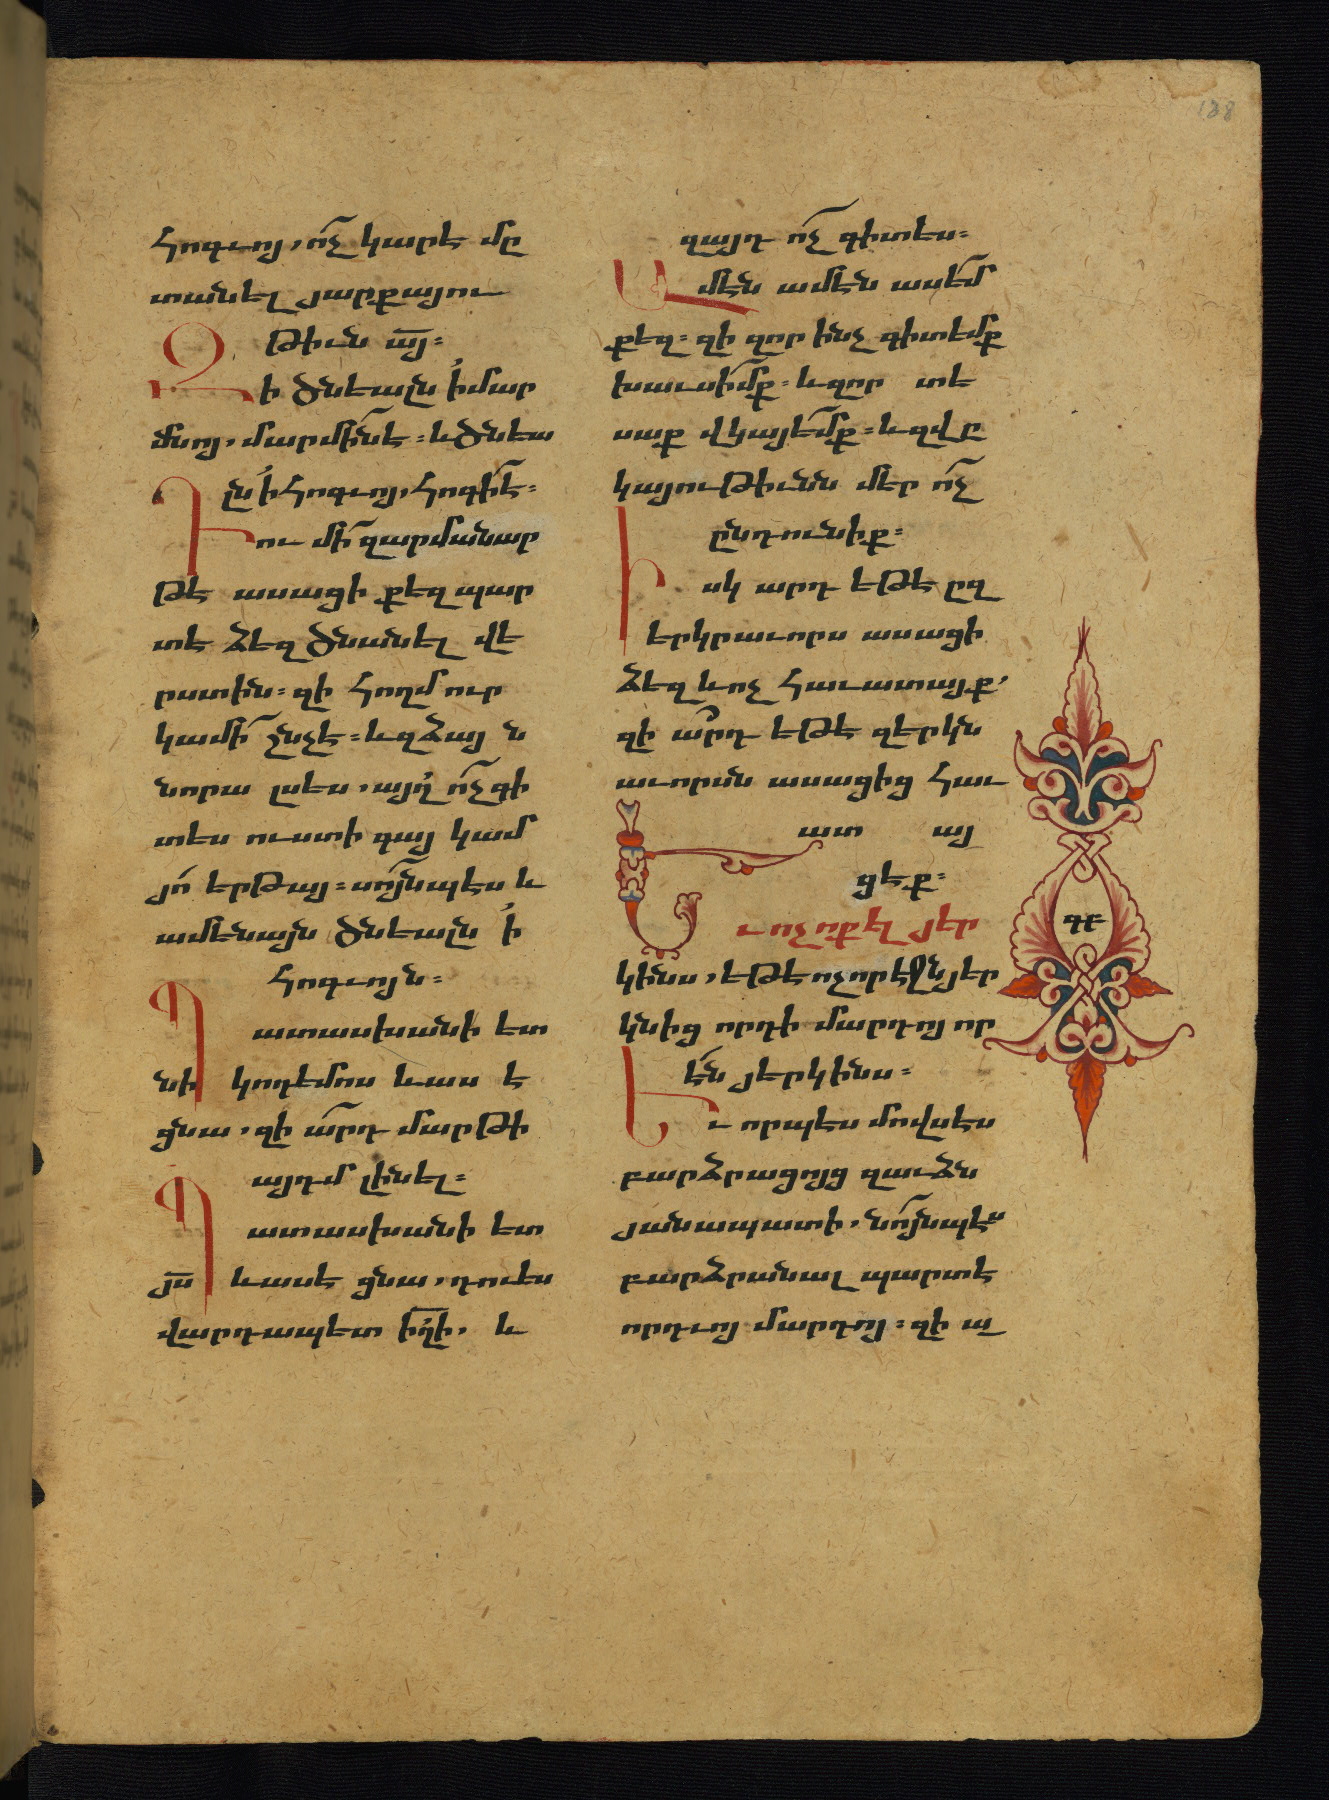 հոգւոյ, ոչ կարէ մը
տանել յարքայու
թիւն այ։
Զի ծնեալն ի մար
մնոյ, մարմին է։ և ծնեա
լն ի հոգւոյ, հոգի է։
Դու մի զարմանար
թէ ասացի քեզ պար
տէ ձեզ ծնանել վե
րստին։ զի հողմ ուր
կամի շնչէ։ և զձայն
նորա լսես, այլ ոչ գի
տես ուստի գայ կամ
յո երթայ։ սոյնպէս և
ամենայն ծնեալն ի
հոգւոյն։
Պատասխանի ետ
նի կոդեմոս և աս է
ցնա, զի արդ մարթի
այդմ լինել։
Պատասխանի ետ
յս և ասէ ցնա, դու ես
վարդապետ իղի, և
138
զայդ ոչ գիտես։
Ամէն ամէն ասեմ
քեզ։ զի զոր ինչ գիտեմք
խաւսիմք։ և զոր տե
սաք վկայեմք։ և զվը
կայութիւնն մեր ոչ
ընդունիք։
Իսկ արդ եթէ ըզ
երկրաւորս ասացի
ձեզ և ոչ հաւատայք,
զի արդ եթէ զերկն
աւորսն ասացից հաւ
ատ այ
ցեք։
Եւ ոչ ոք ել յեր
կինս, եթէ ոչ որ էջն յեր
կնից որդի մարդոյ որ
էն յերկինս։
Եւ որպէս մովսէս
բարձրացոյց զաւձն
յանապատի, նոյնպէս
բարձրանալ պարտէ
որդւոյ մարդոյ։ զի ա
գե